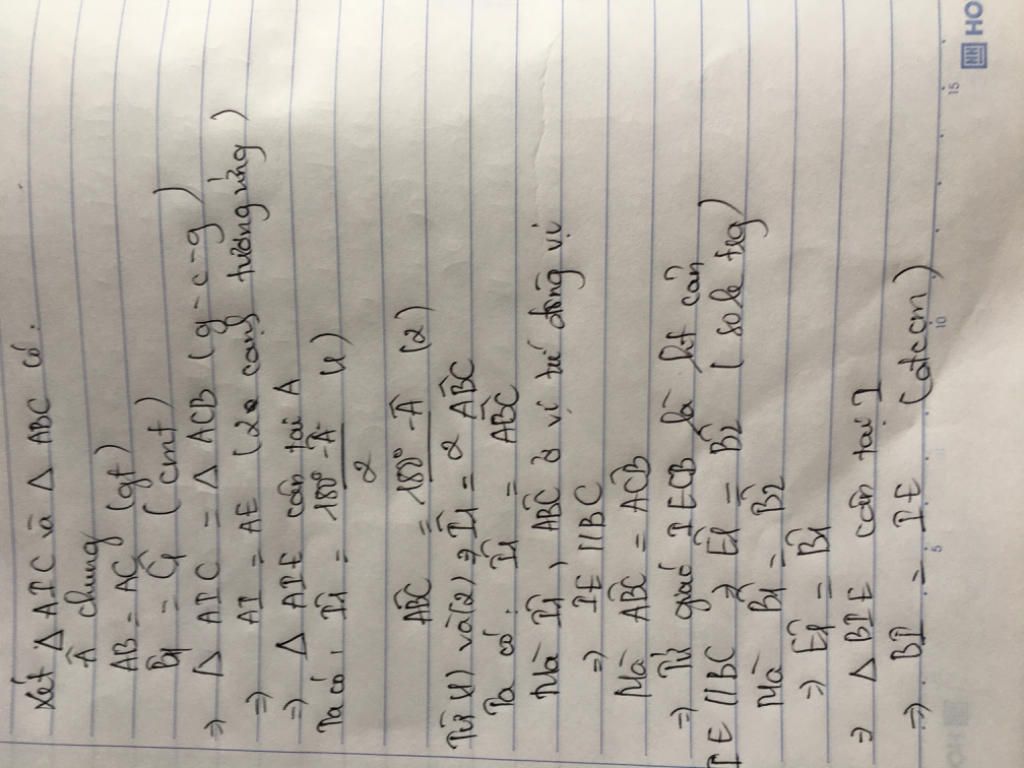 Xét Δ AIC và Δ ABC có.
Â chung
AB = AC (gt)
B̂1 = Ĉ1 (cmt)
⇒ Δ AIC = Δ ACB (g-c-g)
⇒ AI = AE (2 cạnh tương ứng)
⇒ Δ AIE cân tại A
Ta có: Î1 = (180° - Â)/2 (1)
AB̂C = (180° - Â)/2 (2)
Từ (1) và (2) ⇒ Î1 = 2 AB̂C
Ta có: Î1 = AB̂C
Mà Î1, AB̂C ở vị trí đồng vị
⇒ IE // BC
Mà AB̂C = AĈB
⇒ Tứ giác IECB là ht cân
IE // BC ⇒ Ê1 = B̂2 (sole trg)
Mà B̂1 = B̂2
⇒ Ê1 = B̂1
⇒ Δ BIE cân tại I
⇒ BI = IE
HO
15
10
5